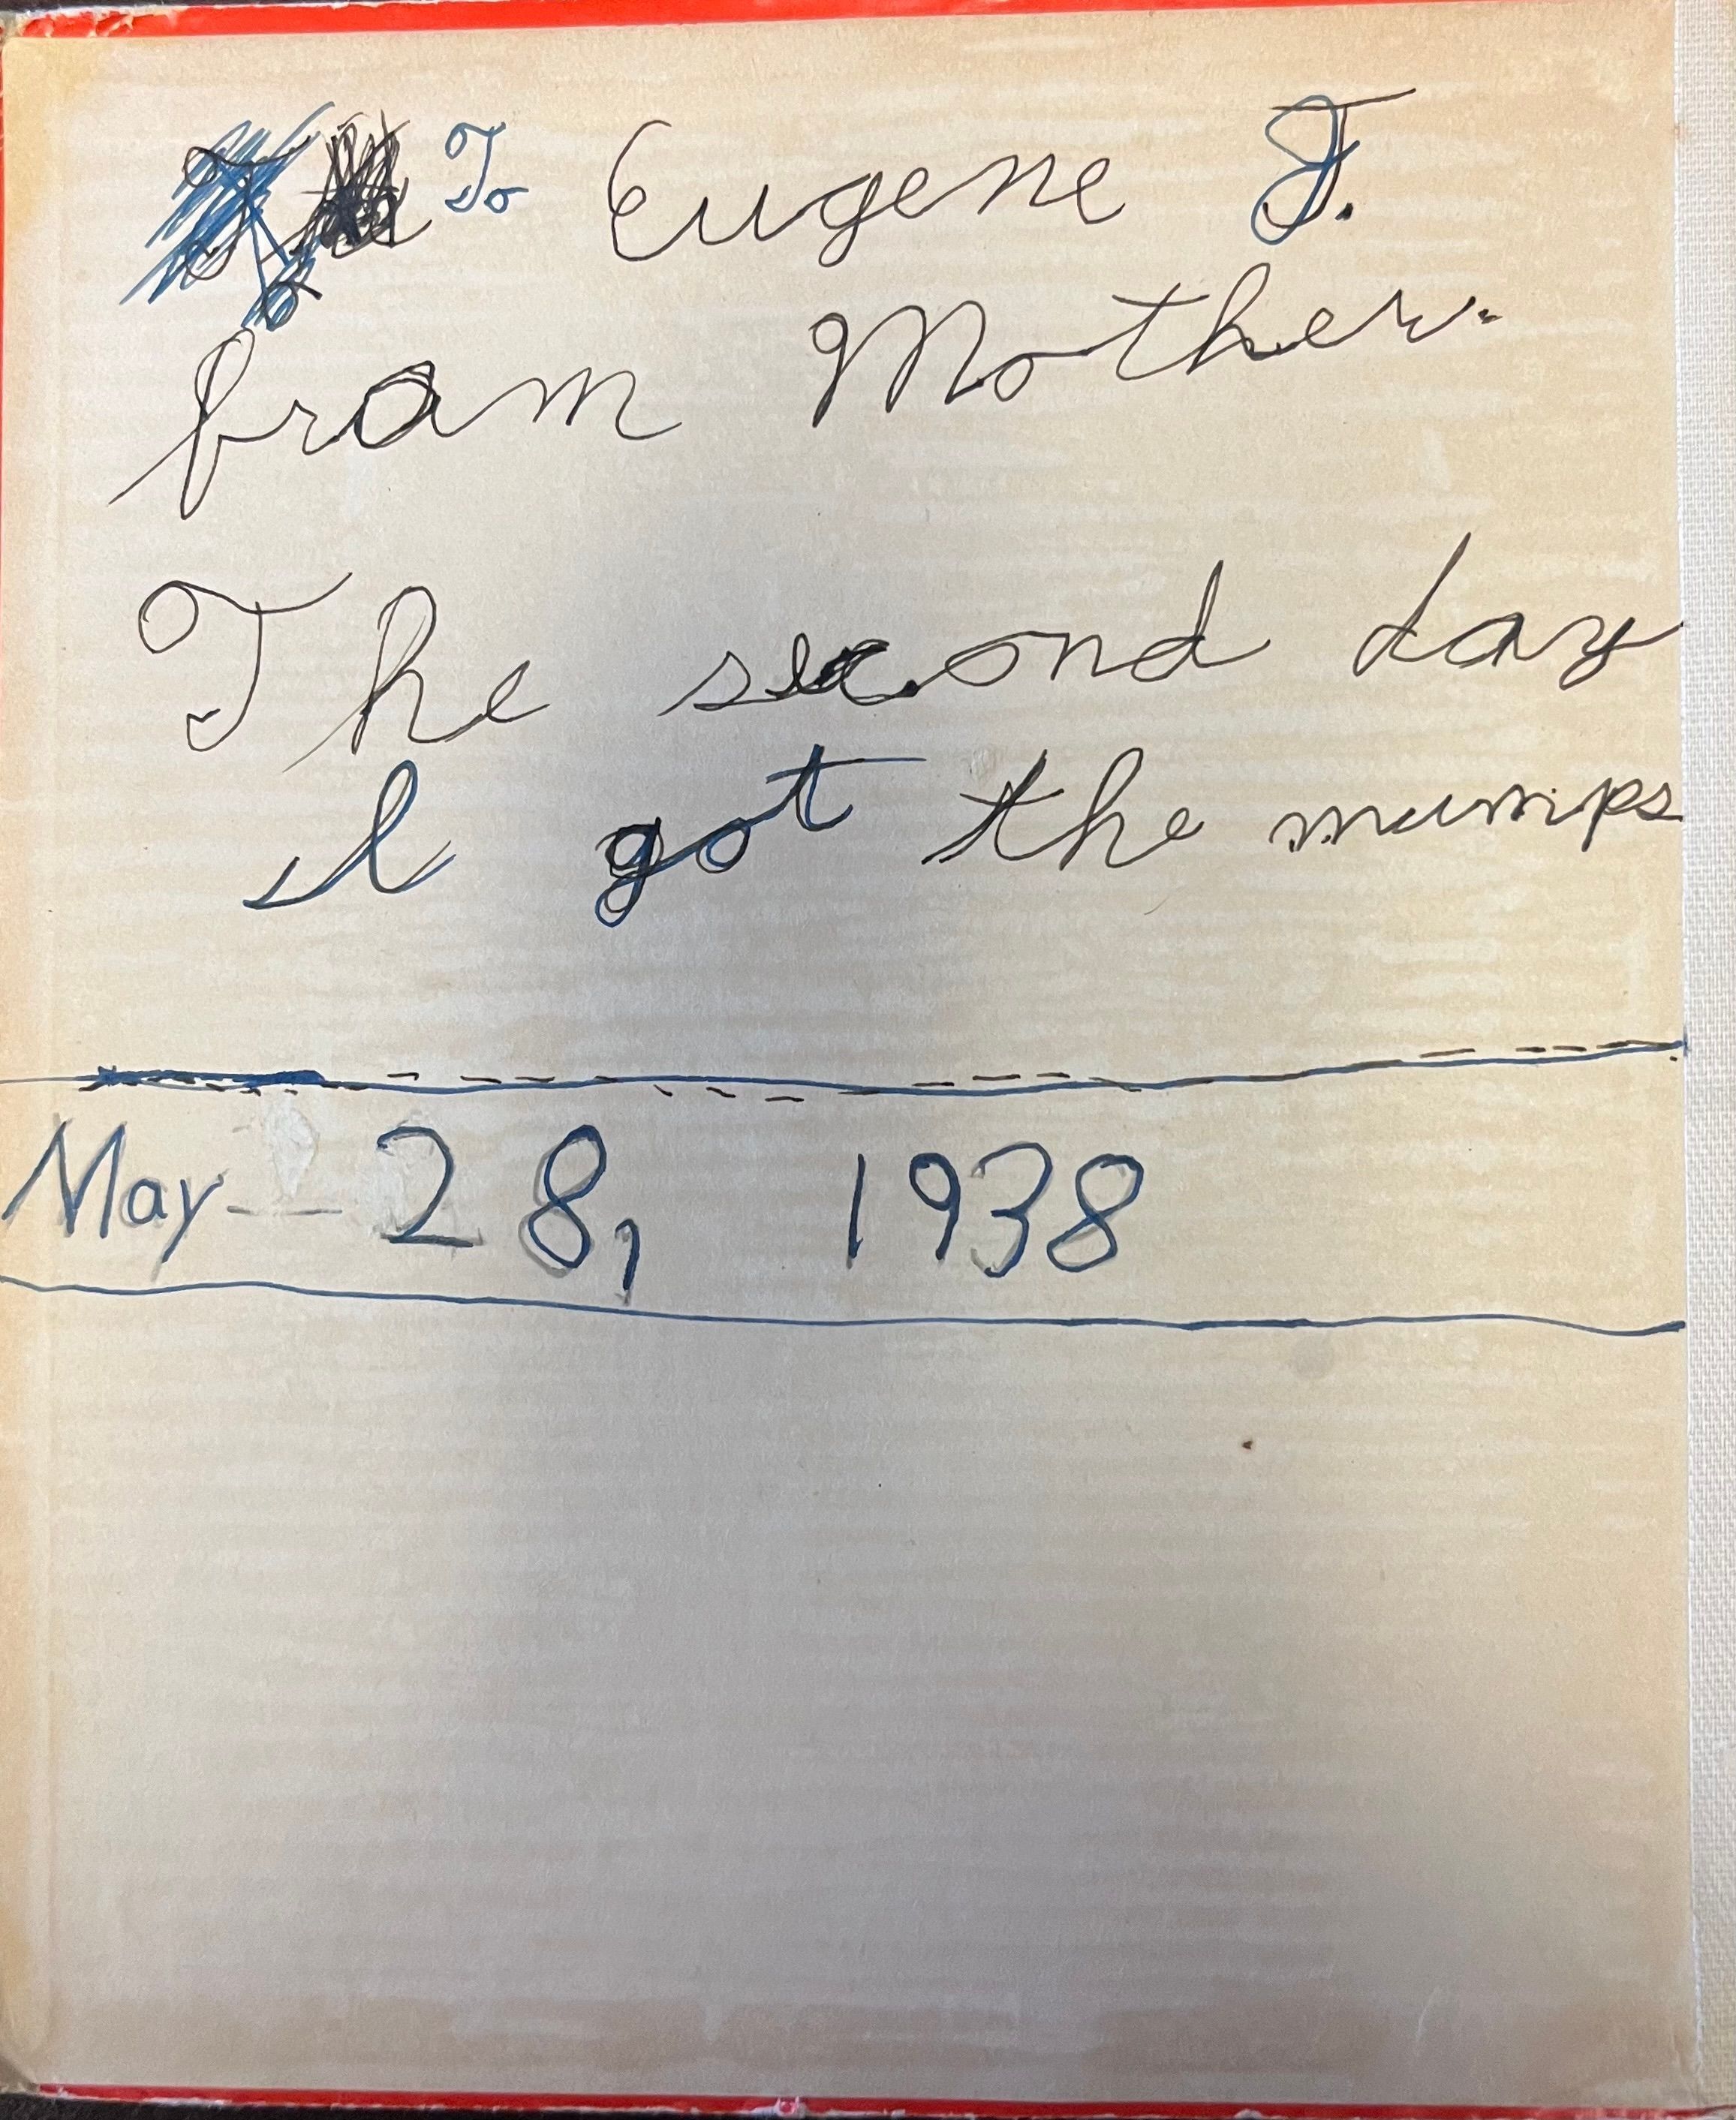 To Eugene F.
from Mother.
The second day
I got the mumps
May 28, 1938